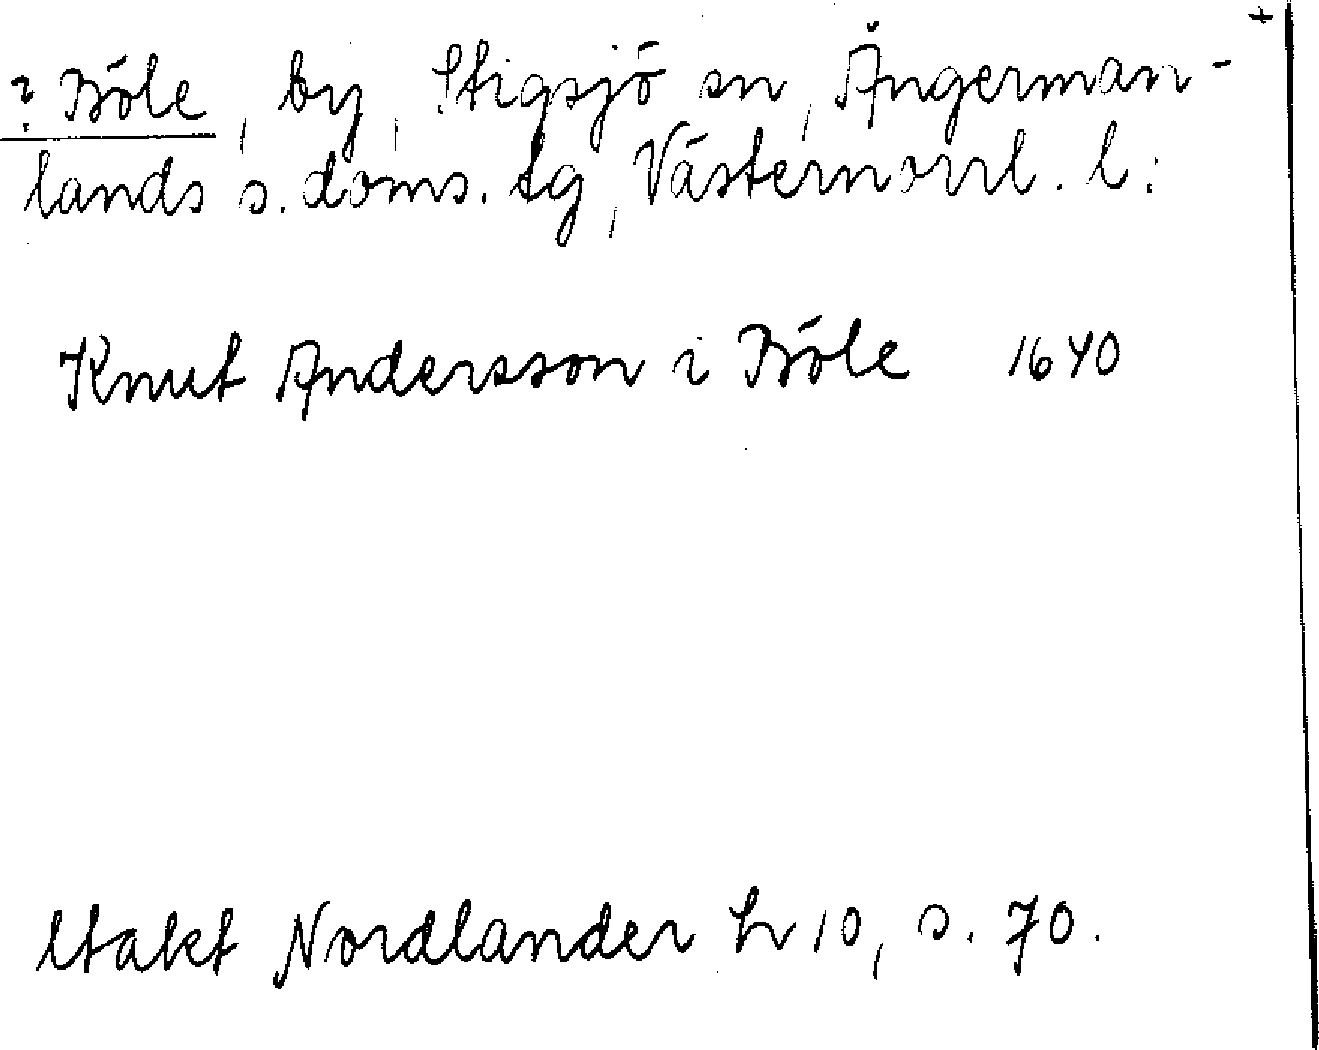 +
? Böle, by, Stigsjö sn, Ångerman-
lands s. doms. tg, Västernorrl. l:
Knut Andersson i Böle 1640
Utakt Nordlander h 10, s. 70.